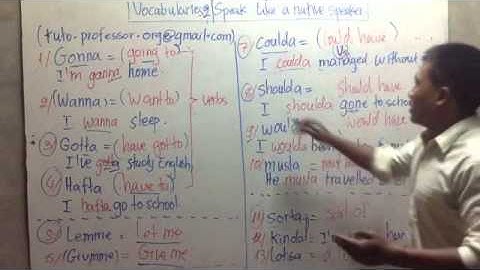 Vocabularies, Speak Like a native speaker
(tulo.professor.org@gmail.com)
1/ Gonna = (going to)
I'm gonna home
2/ (Wanna) = (Want to)
I wanna sleep.
verbs
3/ Gotta = (have got to)
I've gotta study English
4/ Hafta = (have to)
I hafta go to school
5/ Lemme = Let me
5/ (Givmme) = Give me
7/ Coulda = (Could have)
V3
I coulda managed without
8/ Shoulda = should have
I shoulda gone to school
9/ would have
I woulda
10/ musta = must
He musta travelled
11/ Sorta = sort of
12/ Kinda =
13/ Lotsa =